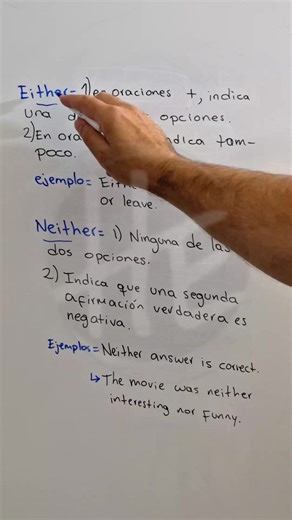 Either= 1) en oraciones +, indica
una d opciones.
2) En ora dica tam-
poco.
ejemplo= Eith
or leave.
Neither= 1) Ninguna de las
dos opciones.
2) Indica que una segunda
afirmación verdadera es
negativa.
Ejemplos= Neither answer is correct.
↳ The movie was neither
interesting nor Funny.